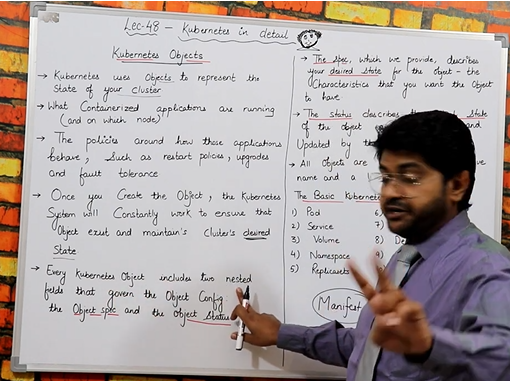 Lec-48 - Kubernetes in detail
Kubernetes Objects
→ Kubernetes uses Objects to represent the
State of your cluster
→ What Containerized applications are running
(and on which node)
→ The policies around how those applications
behave, Such as restart policies, upgrades
and fault tolerance
→ Once you Create the Object, the Kubernetes
System will Constantly work to ensure that
Object exist and maintain's Cluster's desired
State
→ Every Kubernetes Object includes two nested
fields that govern the Object Config
the Object spec and the Object Status
→ The spec, which we provide, describes
your desired state for the Object - the
Characteristics that you want the Object
to have
→ The status describes the State
of the object and
Updated by
→ All Objects are
name and a
The Basic Kubernetes
1) Pod
2) Service
3) Volume
4) Namespace
5) Replicasets
6)
7)
8) De
9)
Manifest